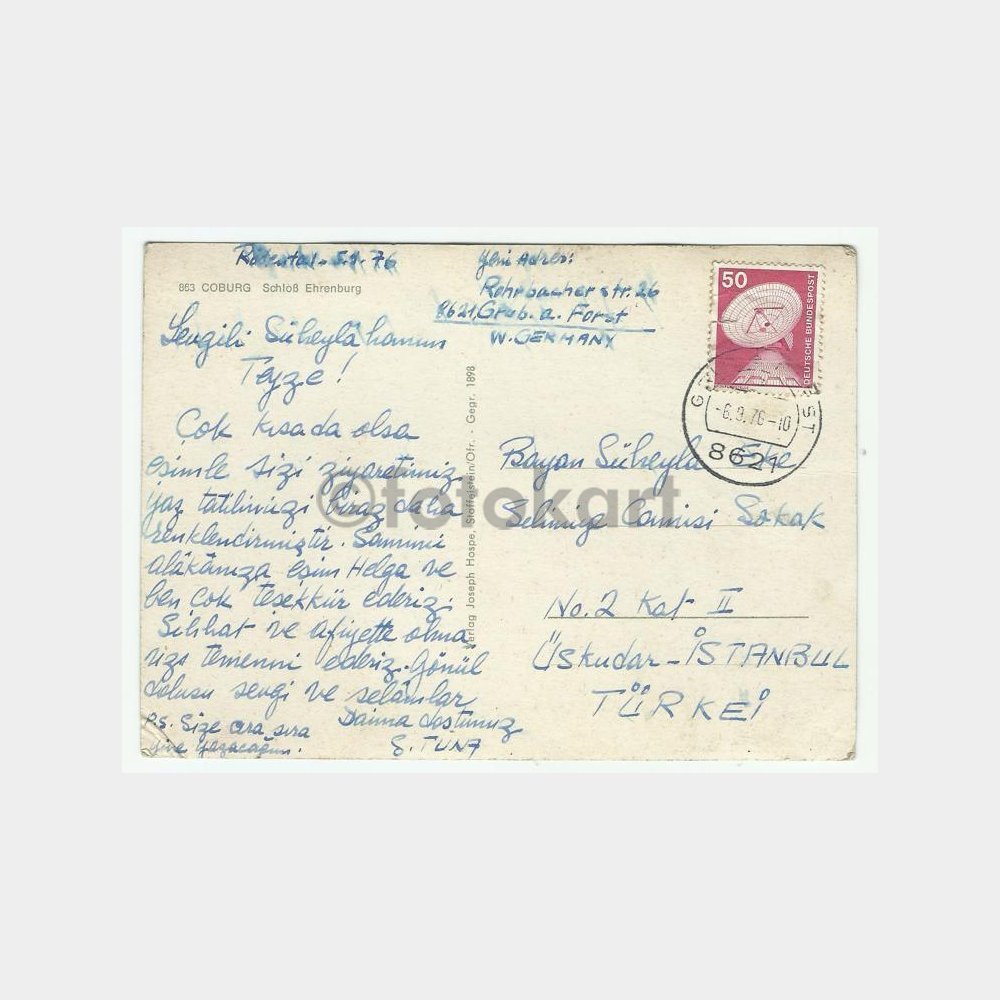 Rödental - 5.9.76
863 COBURG Schloß Ehrenburg
Sevgili Süheylâ hanım
Teyze!
Çok kısada olsa
eşimle sizi ziyaretimiz,
yaz tatilimizi biraz daha
renklendirmiştir. Samimi
alâkanıza, eşim Helga ve
ben çok teşekkür ederiz.
Sihhat ve afiyette olma
nızı temenni ederiz. Gönül
dolusu sevgi ve selâmlar
Daima dostunuz
S. TUNA
P.S. Size ara sıra
yine yazacağım.
Yeni Adres:
Rohrbacher str. 26
8621, Grub. a. Forst
W. GERMANY
Verlag Joseph Hospe, Staffelstein/Ofr. · Gegr. 1898
50
DEUTSCHE BUNDESPOST
-6.9.76-10
8621
Bayan Süheyla
Selimiye Camisi Sokak
No. 2 Kat II
Üskudar - İSTANBUL
TÜRKEİ
©fotokart